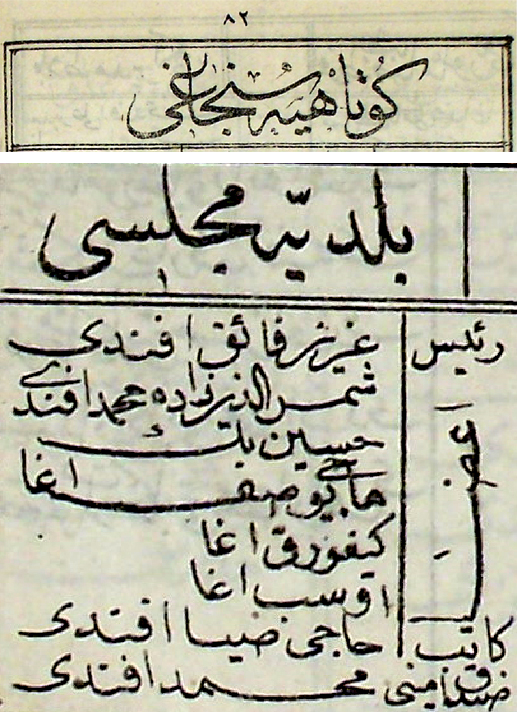 ٨٢
كوتاهیه سنجاغی
بلدیه مجلسی
رئیس عزیز فائق افندی
اعضا شمس الدین زاده محمد افندی
حسین بك
حاجی یوسف اغا
كیفورق اغا
اوسب اغا
كاتب حاجی ضیا افندی
صندق امینی محمد افندی